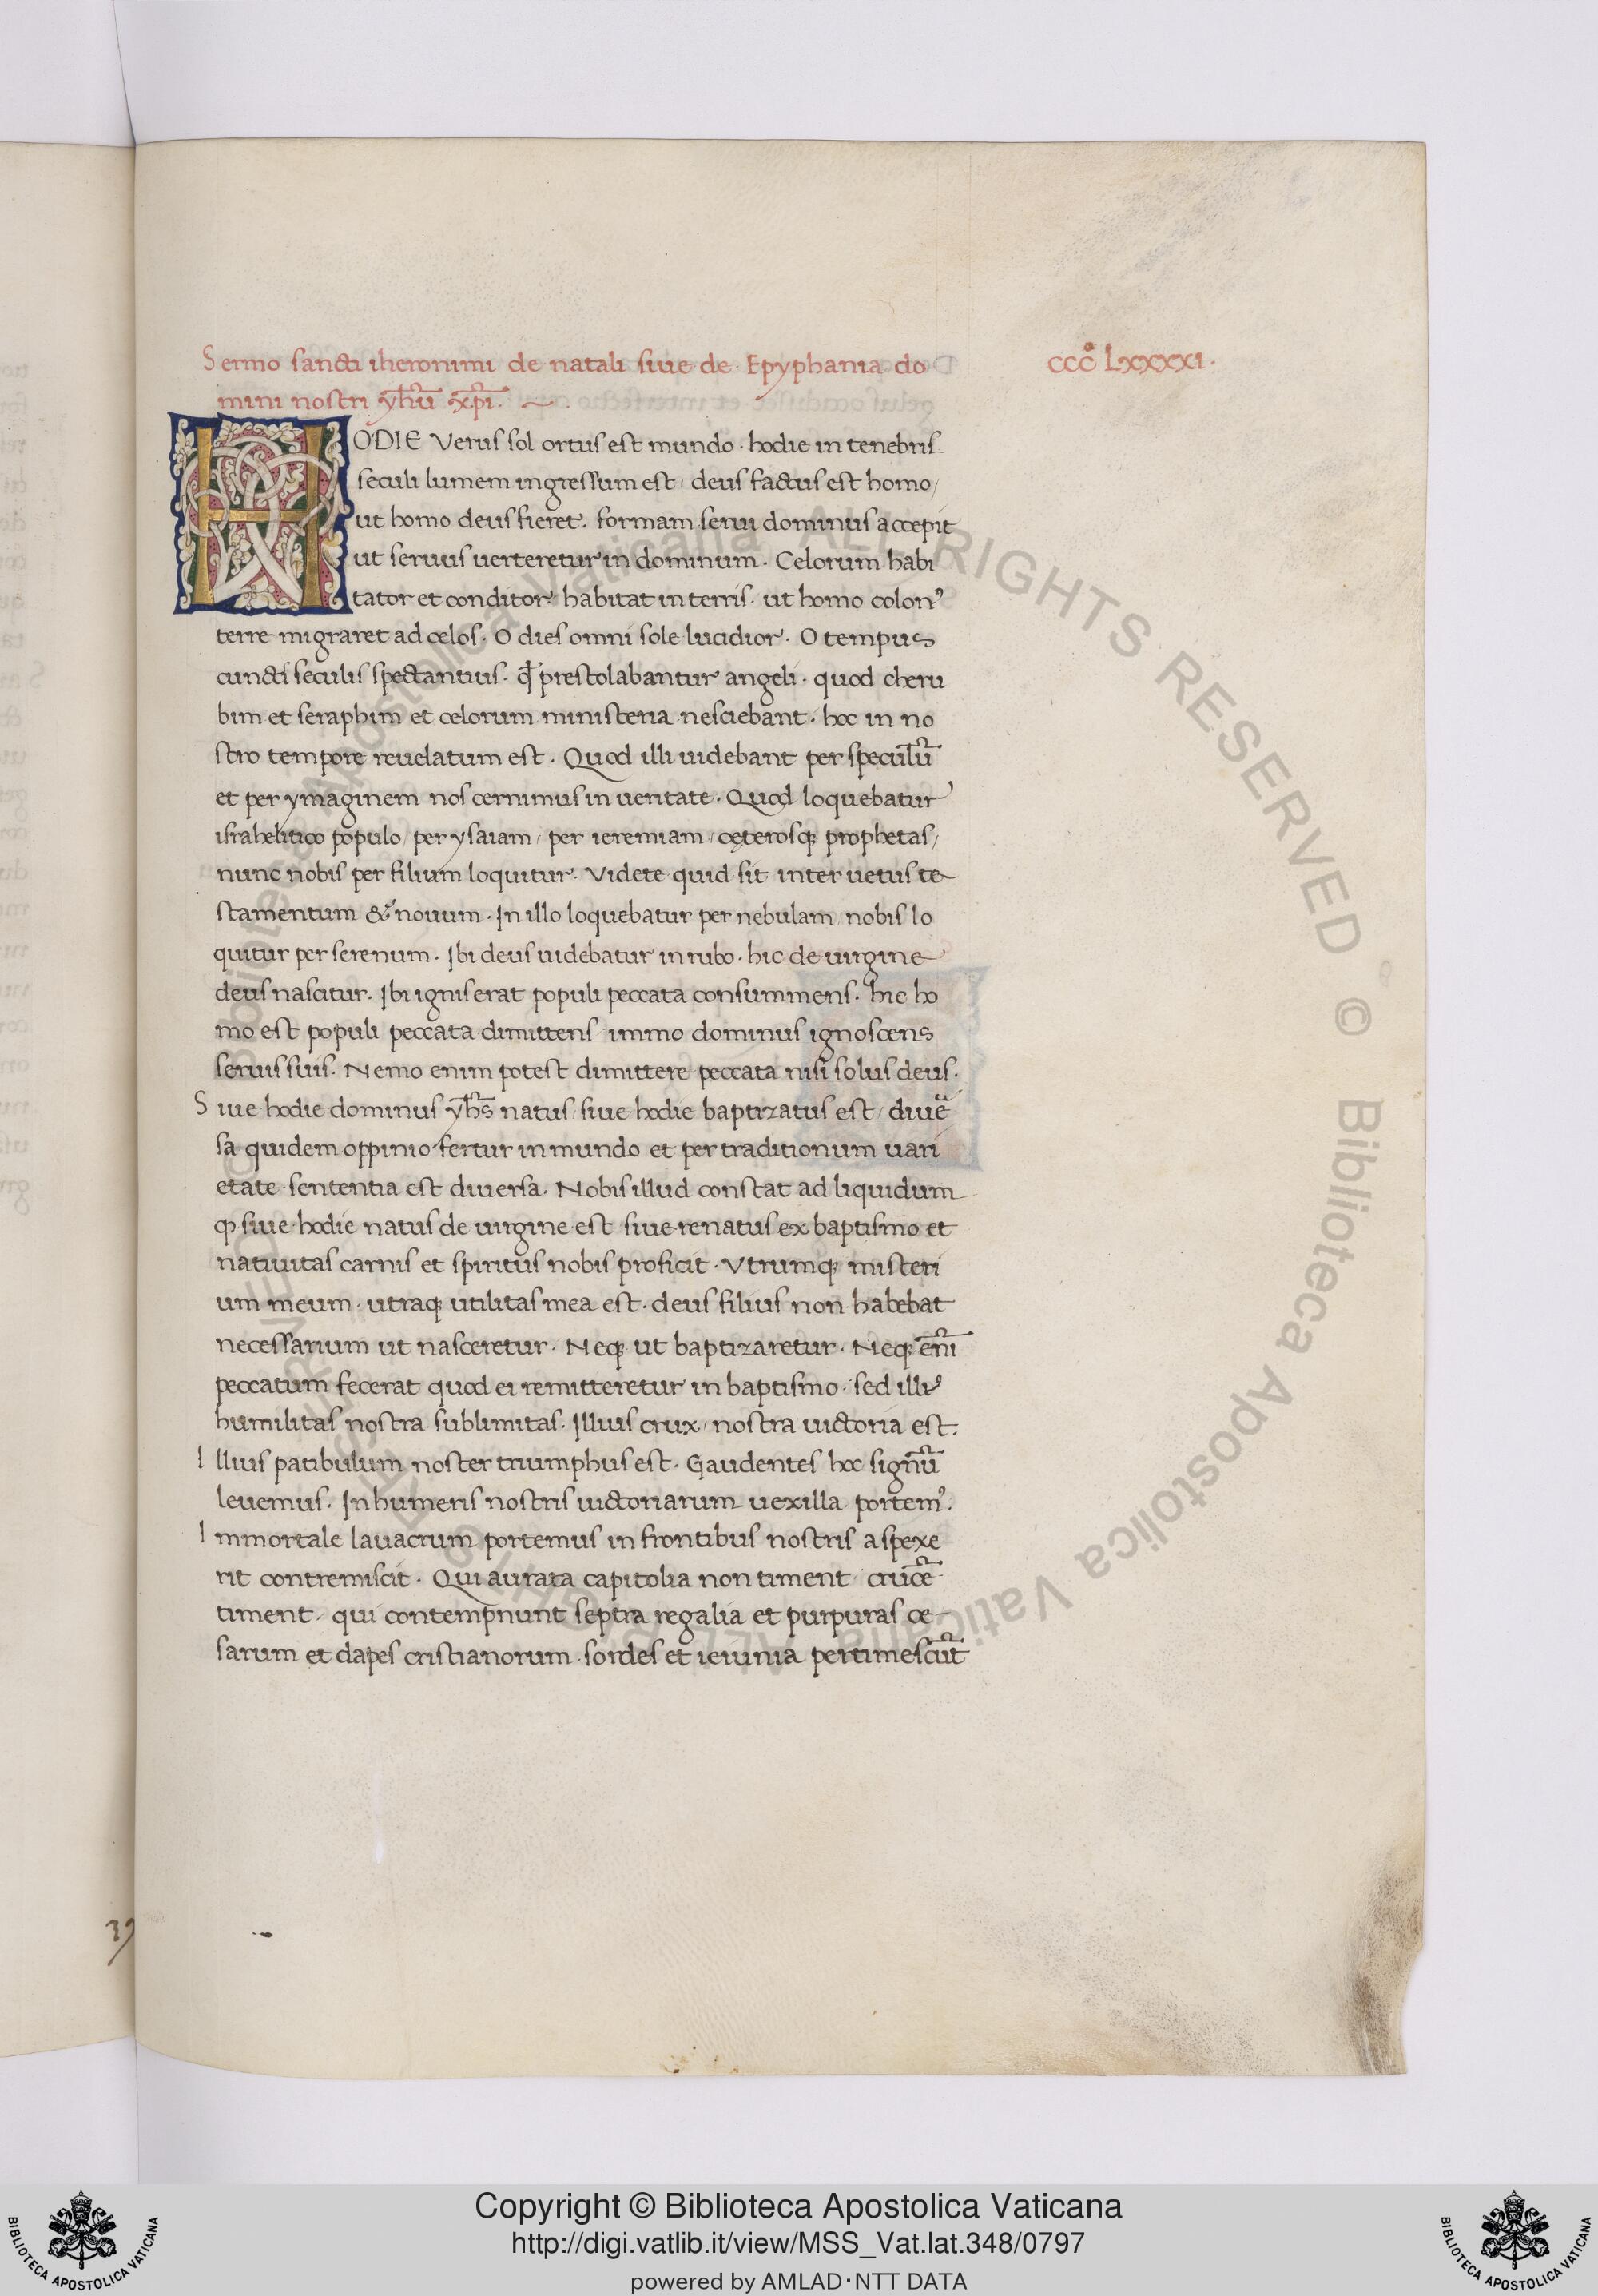 Sermo sancti iheronimi de natali siue de Epyphania do
mini nostri yħu xpi.
cccᵃ Lxxxxi.
HODIE Verus sol ortus est mundo · hodie in tenebris
seculi lumem ingressum est, deus factus est homo,
ut homo deus fieret. formam serui dominus accepit
ut seruus uerteretur in dominum. Celorum habi
tator et conditor habitat in terris. ut homo colonꝰ
terre migraret ad celos. O dies omni sole lucidior. O tempus
cuncti seculis spectantius. qd̄ prestolabantur angeli. quod cheru
bim et seraphim et celorum ministeria nesciebant. hoc in no
stro tempore reuelatum est. Quod illi uidebant per speculū
et per ymaginem nos cernimus in ueritate. Quod loquebatur
israhelitico populo, per ysaiam, per ieremiam, cęterosqꝫ prophetas,
nunc nobis per filium loquitur. Videte quid sit inter uetus te
stamentum & nouum. In illo loquebatur per nebulam, nobis lo
quitur per serenum. Ibi deus uidebatur in rubo. hic de uirgine
deus nascitur. Ibi ignis erat populi peccata consummens. hic ho
mo est populi peccata dimittens immo dominus ignoscens
seruis suis. Nemo enim potest dimittere peccata nisi solus deus.
Siue hodie dominus yħs natus, siue hodie baptizatus est, diuē
sa quidem oppinio fertur in mundo et per traditionum uari
etate sententia est diuersa. Nobis illud constat ad liquidum
ꝙ siue hodie natus de uirgine est siue renatus ex baptismo et
natiuitas carnis et spiritus nobis proficit. Vtrumqꝫ misteri
um meum. utraqꝫ utilitas mea est. deus filius non habebat
necessarium ut nasceretur. Neqꝫ ut baptizaretur. Neqꝫ enī
peccatum fecerat quod ei remitteretur in baptismo. sed illiꝰ
humilitas nostra sublimitas. Illius crux, nostra uictoria est.
Illius patibulum noster triumphus est. Gaudentes hoc signū
leuemus. In humeris nostris uictoriarum uexilla portemꝰ.
Immortale lauacrum portemus in frontibus nostris aspexe
rit contremiscit. Qui aurata capitolia non timent crucē
timent, qui contempnunt septra regalia et purpuras ce
sarum et dapes cristianorum sordes et ieiunia pertimescūt
© Biblioteca Apostolica Vaticana ALL RIGHTS RESERVED © Biblioteca Apostolica Vaticana ALL RIGHTS RESERVED
BIBLIOTECA APOSTOLICA VATICANA
Copyright © Biblioteca Apostolica Vaticana
http://digi.vatlib.it/view/MSS_Vat.lat.348/0797
powered by AMLAD·NTT DATA
BIBLIOTECA APOSTOLICA VATICANA